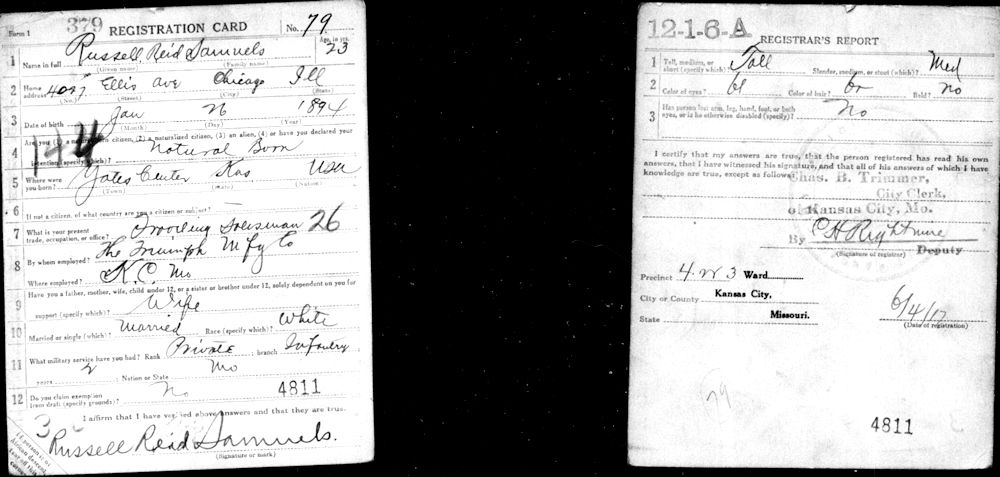 Form 1 379 REGISTRATION CARD No. 79
Russell Reid Samuels Age, in yrs. 23
1 Name in full
(Given name) (Family name)
2 Home address 4027 Ellis Ave Chicago Ill
(No.) (Street) (City) (State)
3 Date of birth Jan 26 1894
(Month) (Day) (Year)
144
4 Are you (1) a natural-born citizen, (2) a naturalized citizen, (3) an alien, (4) or have you declared your
intention (specify which)? Natural Born
5 Where were you born? Yates Center Kas USA
(Town) (State) (Nation)
6 If not a citizen, of what country are you a citizen or subject?
7 What is your present trade, occupation, or office? Traveling Salesman 26
8 By whom employed? The Triumph Mfg Co
Where employed? K.C. Mo
9 Have you a father, mother, wife, child under 12, or a sister or brother under 12, solely dependent on you for
support (specify which)? Wife
10 Married or single (which)? Married Race (specify which)? White
11 What military service have you had? Rank Private ; branch Infantry
years 2 ; Nation or State Mo
12 Do you claim exemption from draft (specify grounds)? No 4811
I affirm that I have verified above answers and that they are true.
3
Russell Reid Samuels.
(Signature or mark)
If person is of African descent,
12-1-6-A REGISTRAR'S REPORT
1 Tall, medium, or short (specify which)? Tall Slender, medium, or stout (which)? Med
2 Color of eyes? bl Color of hair? br Bald? No
3 Has person lost arm, leg, hand, foot, or both eyes, or is he otherwise disabled (specify)? No
I certify that my answers are true, that the person registered has read his own
answers, that I have witnessed his signature, and that all of his answers of which I have
knowledge are true, except as follows:
Chas. B. Trimmer,
City Clerk,
of Kansas City, Mo.
By C H Rightmire
(Signature of registrar) Deputy
Precinct 4. W 3 Ward
City or County Kansas City,
State Missouri.
6/4/17
(Date of registration)
79
4811